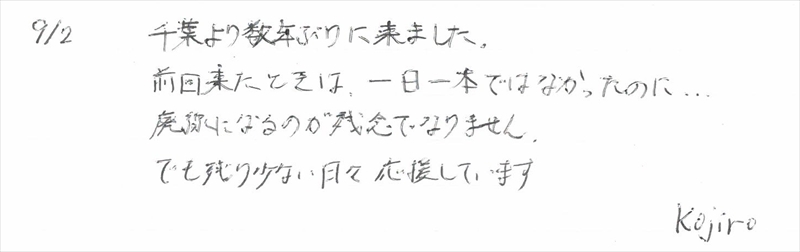 9/2 千葉より数年ぶりに来ました。
前回来たときは、一日一本ではなかったのに…
廃線になるのが残念でなりません。
でも残り少ない日々 応援しています
Kojiro